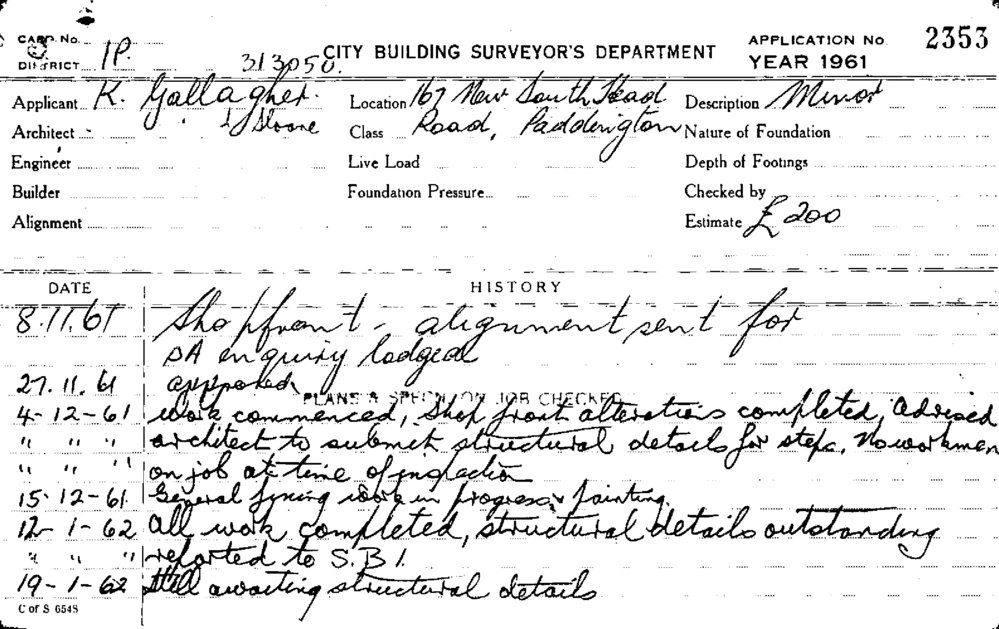 CARD No.
DISTRICT 1P.
313050.
CITY BUILDING SURVEYOR'S DEPARTMENT
APPLICATION No 2353
YEAR 1961
Applicant K. Gallagher. Location 167 New South Head Description Minor
Architect Sloane Class Road, Paddington Nature of Foundation
Engineer Live Load Depth of Footings
Builder Foundation Pressure Checked by
Alignment Estimate £200
DATE HISTORY
8.11.61 Shopfront - alignment sent for
DA enquiry lodged
27.11.61 approved
PLANS & SPECI ON JOB CHECKED
4-12-61 work commenced, Shop front alterations completed, Advised
" " " architect to submit structural details for steps. No workmen
" " " on job at time of inspection
15-12-61 General fixing work in progress & painting.
12-1-62 All work completed, structural details outstanding
" " " reported to S.B.I.
19-1-62 Still awaiting structural details
C of S 6548